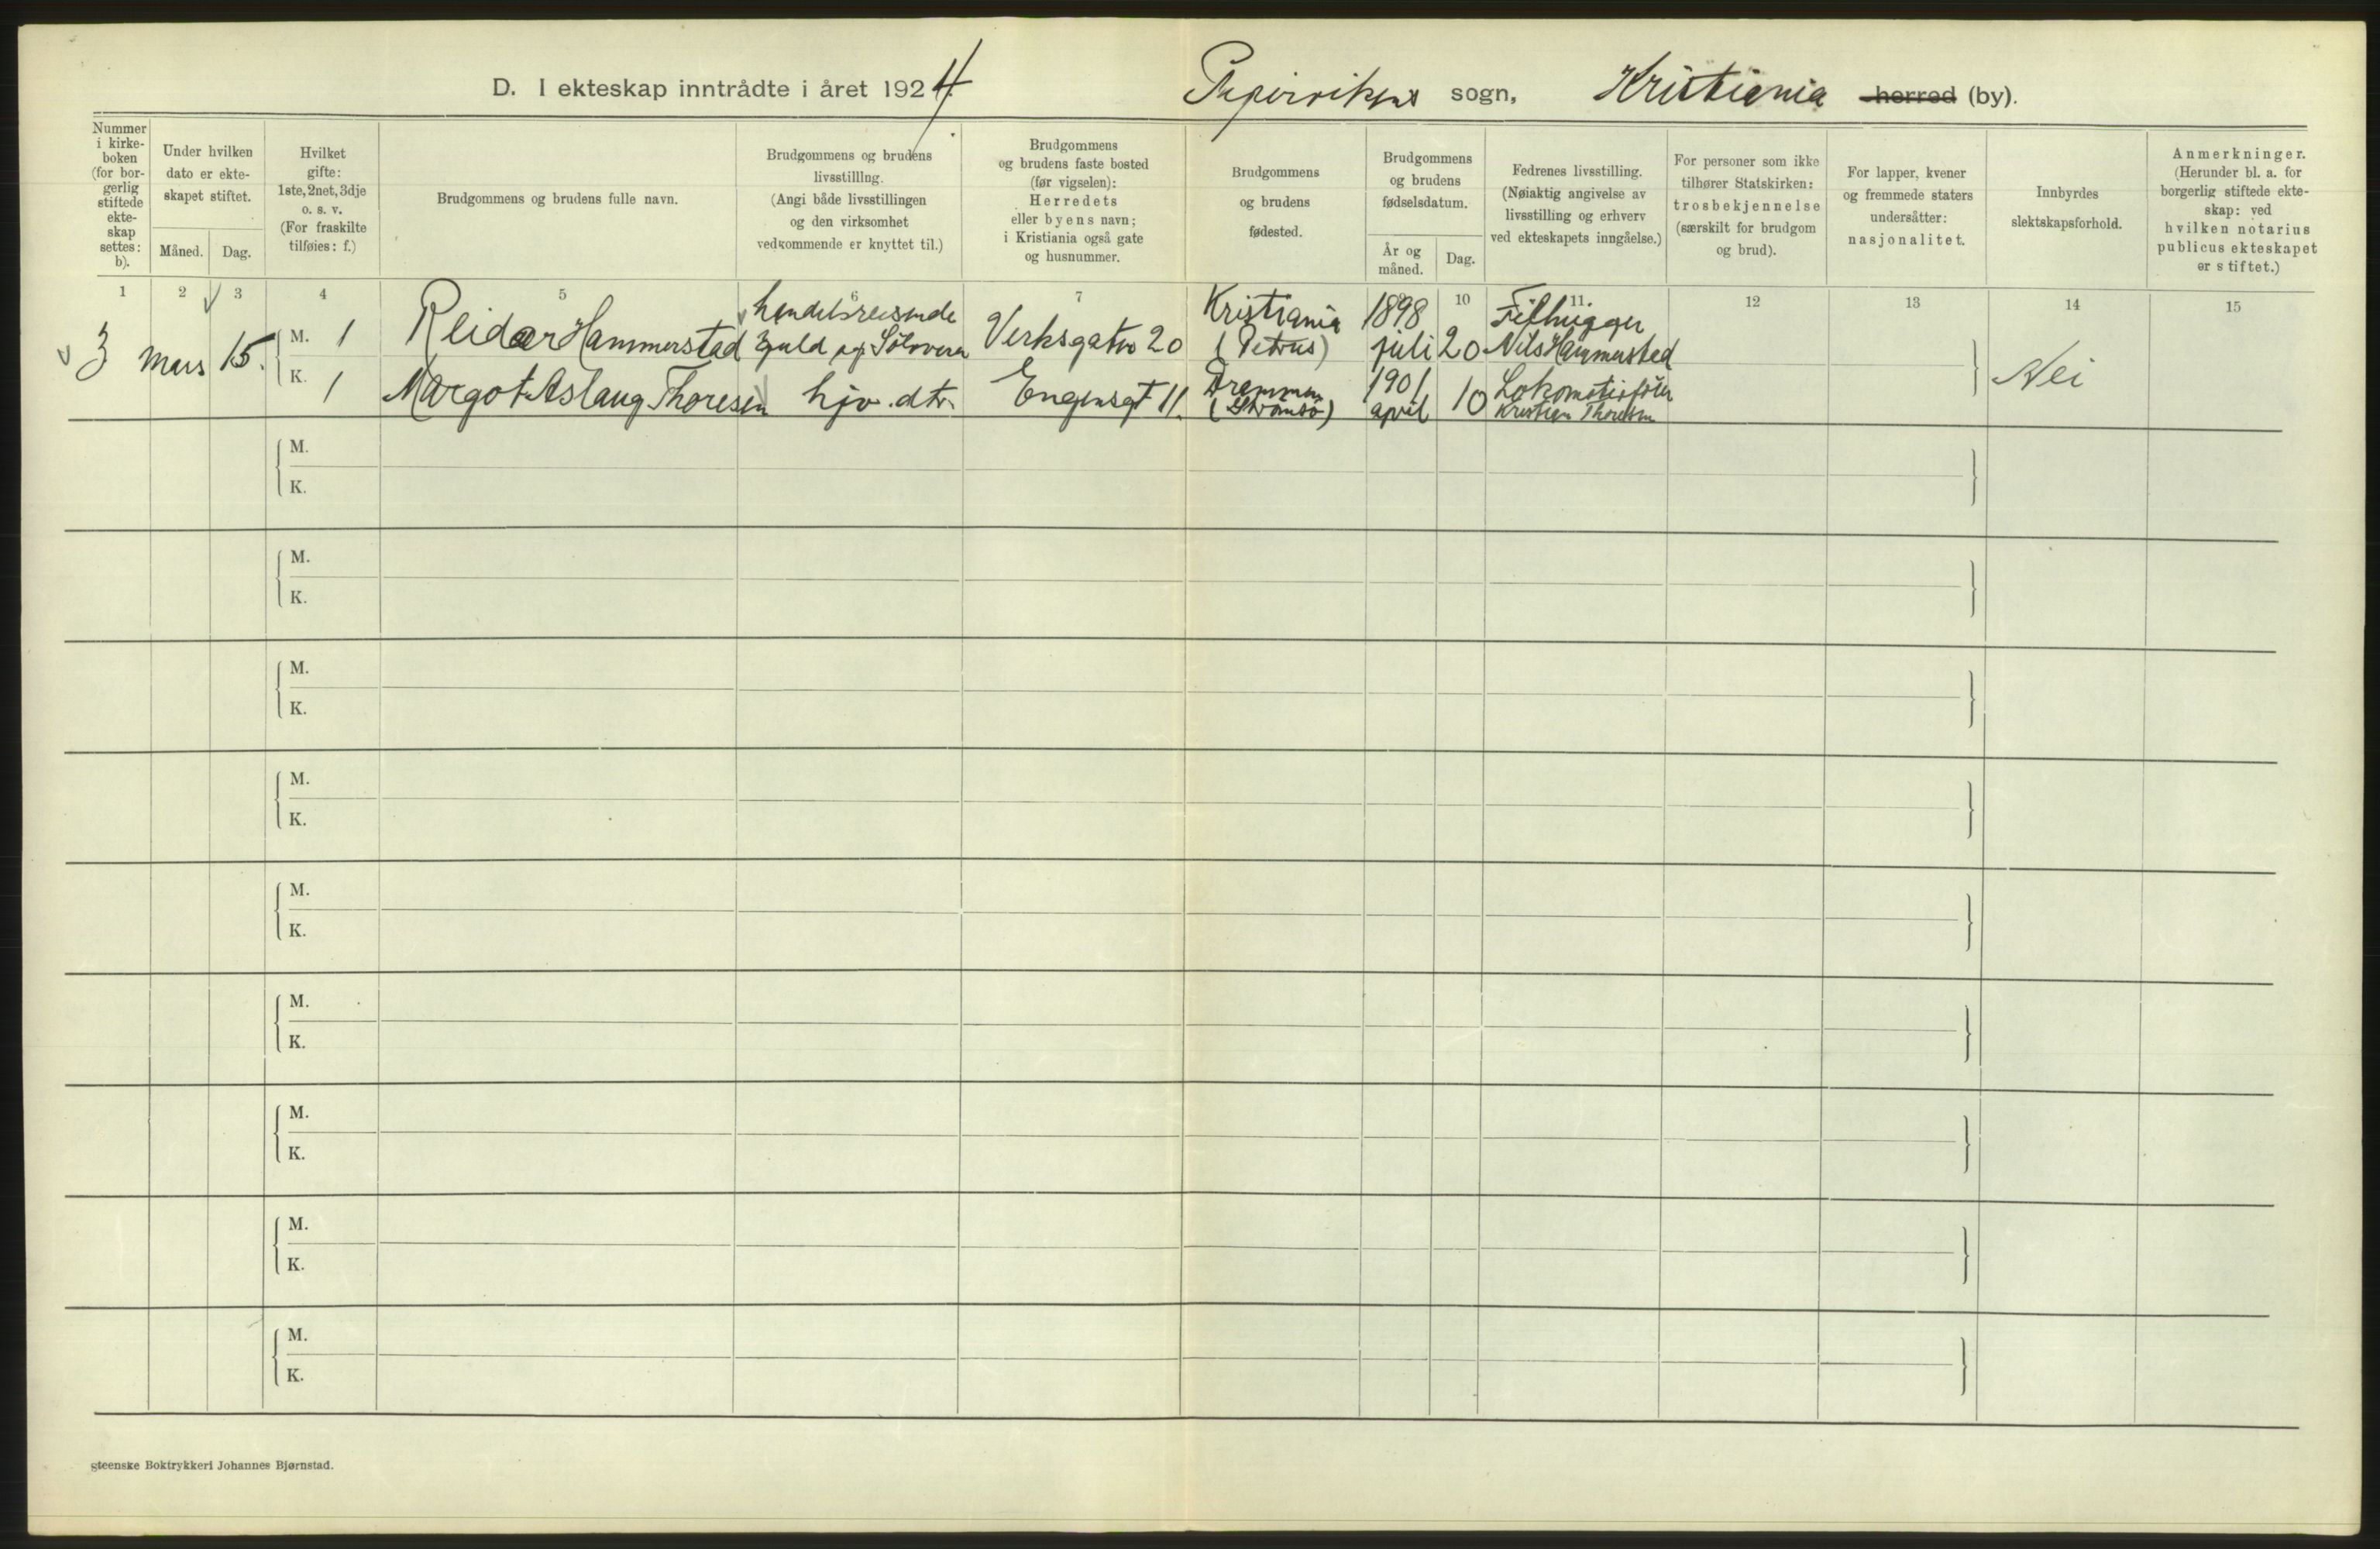 D. I ekteskap inntrådte i året 1924. Papirvikens sogn, Kristiania herred (by).
Nummer
i kirke-
boken
(for bor-
gerlig
stiftede
ekte-
skap
settes:
b).
Under hvilken
dato er ekte-
skapet stiftet.
Måned. Dag.
Hvilket
gifte:
1ste, 2net, 3dje
o. s. v.
(For fraskilte
tilføies: f.)
Brudgommens og brudens fulle navn.
Brudgommens og brudens
livsstilling.
(Angi både livsstillingen
og den virksomhet
vedkommende er knyttet til.)
Brudgommens
og brudens faste bosted
(før vigselen):
Herredets
eller byens navn;
i Kristiania også gate
og husnummer.
Brudgommens
og brudens
fødested.
Brudgommens
og brudens
fødselsdatum.
År og
måned.
Dag.
Fedrenes livsstilling.
(Nøiaktig angivelse av
livsstilling og erhverv
ved ekteskapets inngåelse.)
For personer som ikke
tilhører Statskirken:
trosbekjennelse
(særskilt for brudgom
og brud).
For lapper, kvener
og fremmede staters
undersåtter:
nasjonalitet.
Innbyrdes
slektskapsforhold.
Anmerkninger.
(Herunder bl. a. for
borgerlig stiftede ekte-
skap: ved
hvilken notarius
publicus ekteskapet
er stiftet.)
1 2 3 4 5 6 7 10 11. 12 13 14 15
3 Mars 15.
M. 1 Reidar Hammerstad
handelsreisende
Guld og Sølvvarer
Verksgaten 20
Kristiania
(Petrus)
1898
juli 20
Filhugger
Nils Hammerstad
K. 1 Margot Aslaug Thoresen
hjv. dtr.
Engensgt 11.
Drammen
(Strømsø)
1901
april 10
Lokomotivfører
Kristian Thoresen
Nei
M.
K.
M.
K.
M.
K.
M.
K.
M.
K.
M.
K.
M.
K.
M.
K.
M.
K.
steenske Boktrykkeri Johannes Bjørnstad.